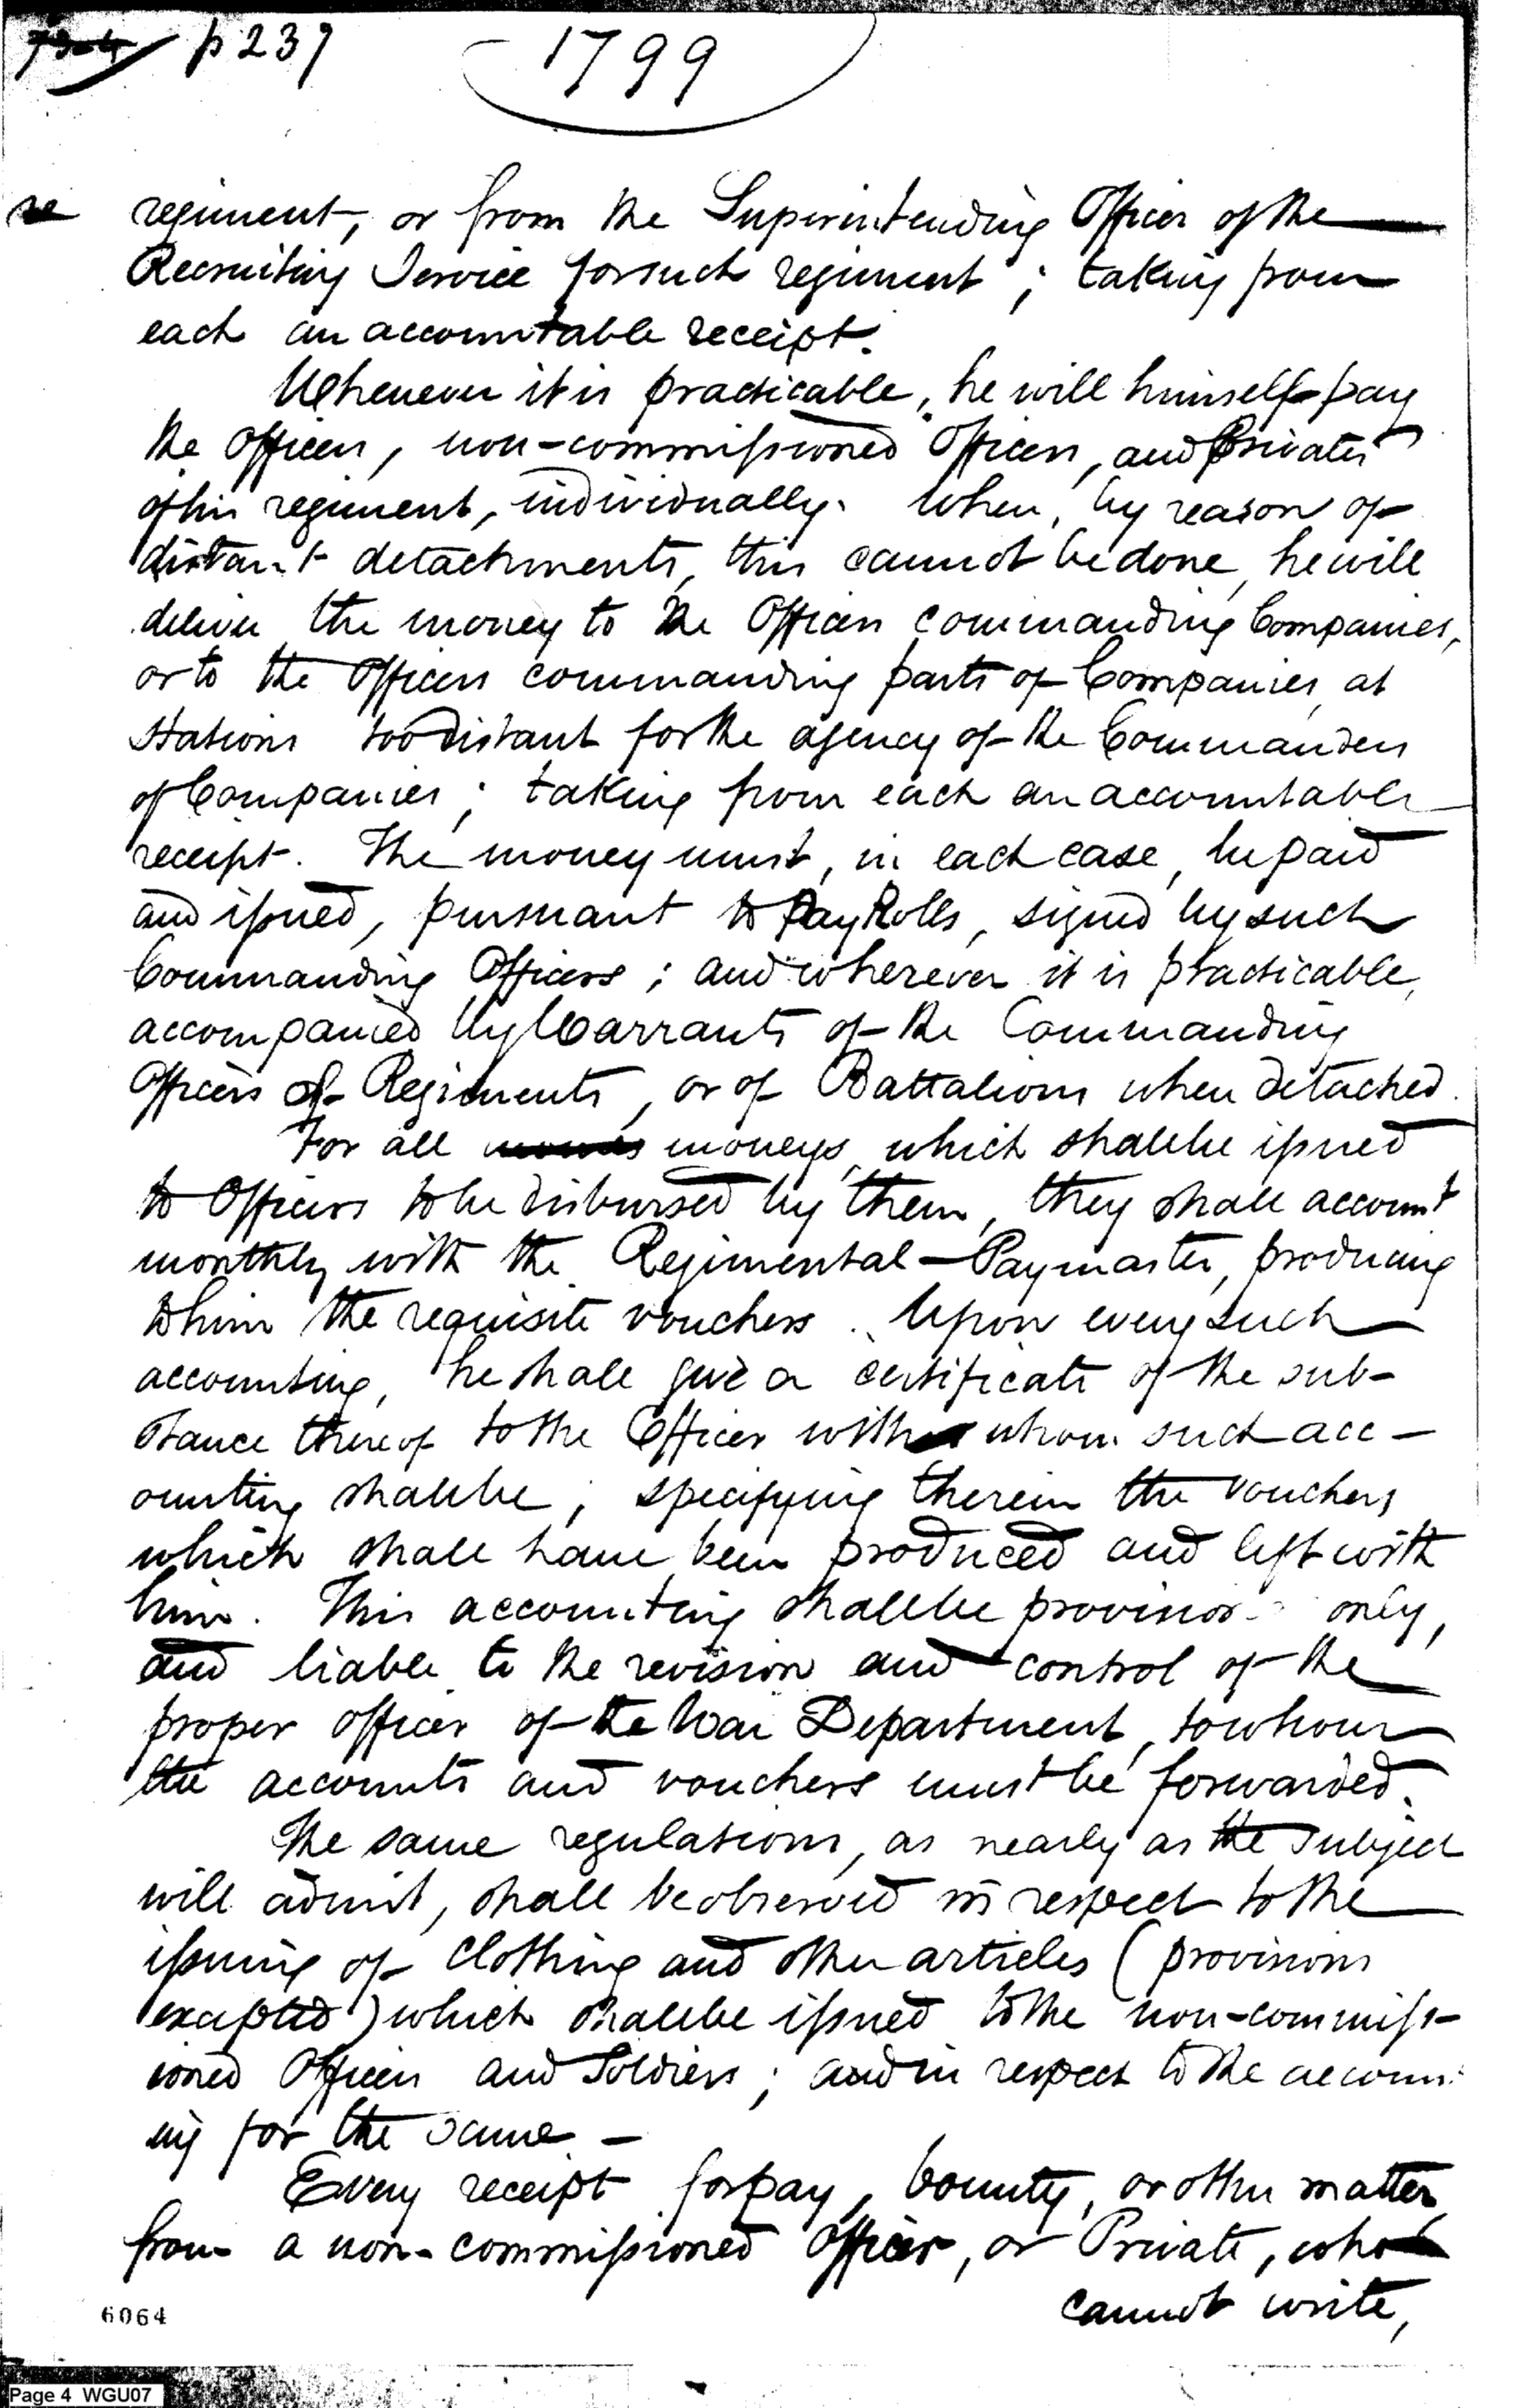 p 239
1799
regiment, or from the Superintending Officer of the
Recruiting Service for such regiment; taking from
each an accountable receipt.
Whenever it is practicable, he will himself pay
the Officers, non-commissioned Officers, and Privates
of his regiment, individually. When, by reason of
distant detachments, this cannot be done, he will
deliver the money to the Officers commanding Companies,
or to the Officers commanding parts of Companies, at
Stations too distant for the agency of the Commanders
of Companies; taking from each an accountable
receipt. The money must, in each case, be paid
and issued, pursuant to Pay Rolls, signed by such
Commanding Officers; and wherever it is practicable,
accompanied by Warrants of the Commanding
Officers of Regiments, or of Battalions when detached.
For all moneys, which shall be issued
to Officers to be disbursed by them, they shall account
monthly with the Regimental-Paymaster, producing
to him the requisite vouchers. Upon every such
accounting, he shall give a certificate of the sub-
stance thereof to the Officer with whom such acc-
ounting shall be; specifying therein the vouchers
which shall have been produced and left with
him. This accounting shall be only,
and liable to the revision and control of the
proper officer of the War Department, to whom
the accounts and vouchers must be forwarded.
The same regulations, as nearly as the subject
will admit, shall be observed in respect to the
issuing of Clothing and other articles (provisions
excepted) which shall be issued to the non-commiss-
ioned Officers and Soldiers; and in respect to the account
ing for the same. -
Every receipt for pay, bounty, or other matter,
from a non-commissioned Officer, or Private, who
cannot write,
6064
Page 4 WGU07